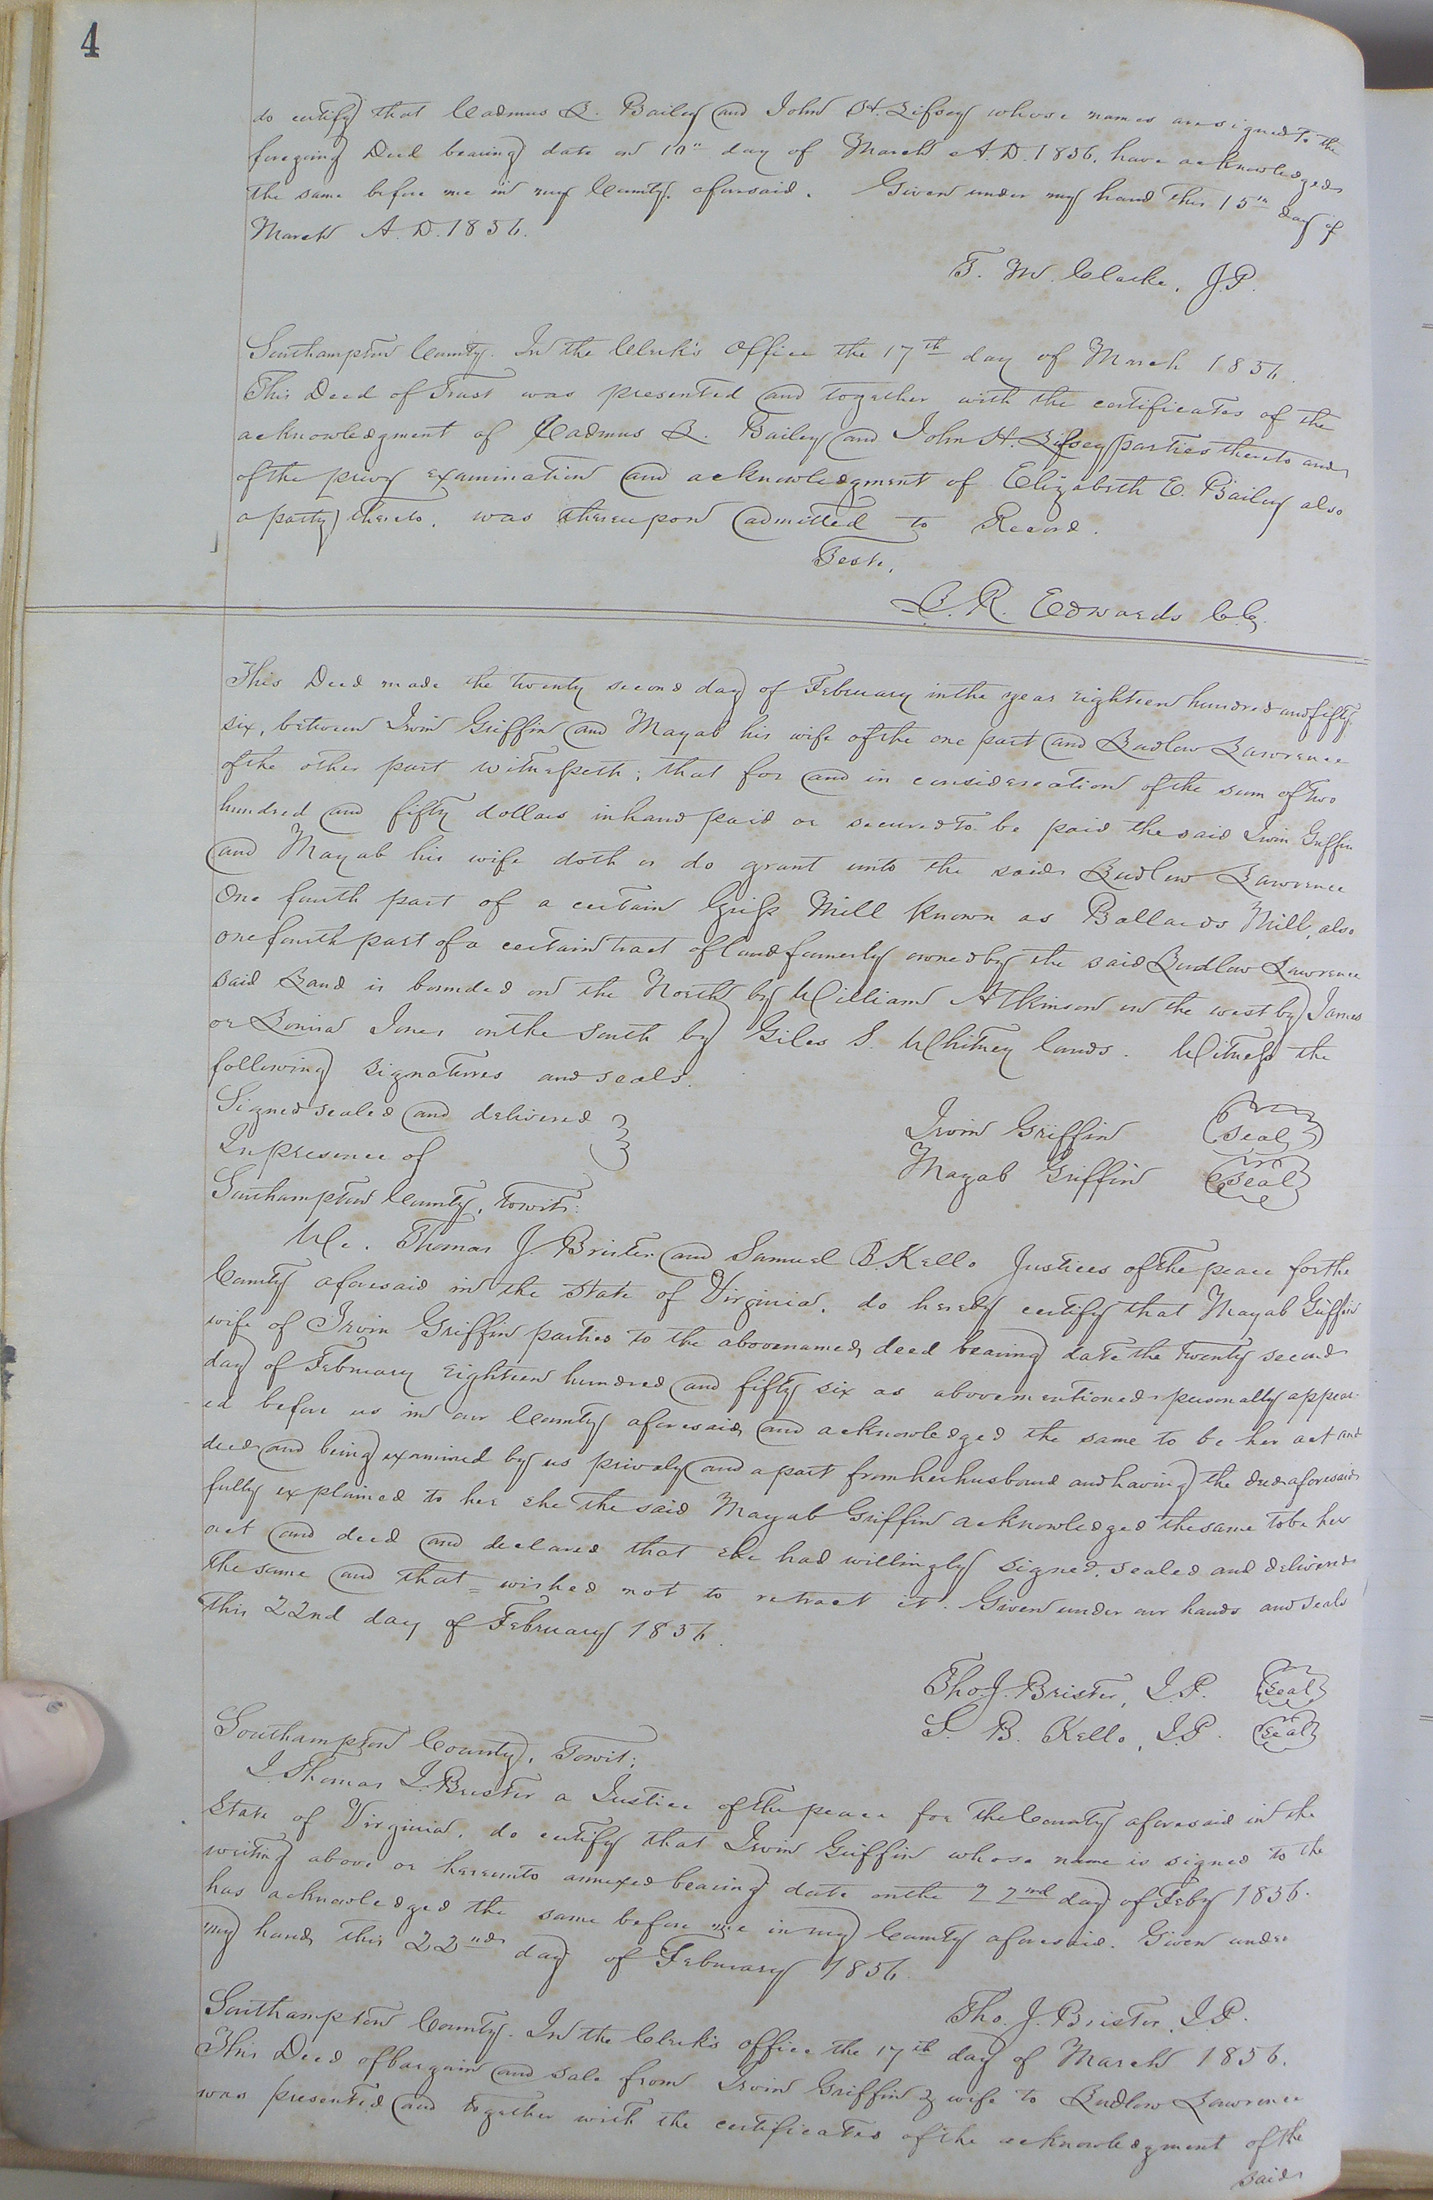 4
do certify that Cadmus L. Bailey and John H. Lifsey whose names are signed to the
foregoing Deed bearing date on 10th day of March A.D. 1856. have acknowledged
the same before me in my County aforesaid. Given under my hand this 15th day of
March A.D. 1856.
T. W. Clarke, J.P.
Southampton County. In the Clerk's Office the 17th day of March 1856.
This Deed of Trust was presented and together with the certificates of the
acknowledgment of Cadmus L. Bailey and John H. Lifsey parties thereto and
of the privy examination and acknowledgment of Elizabeth E. Bailey also
a party thereto, was thereupon admitted to Record.
Teste,
L. R. Edwards C.C.
This Deed made the twenty second day of February in the year eighteen hundred and fifty
six, between Irvin Griffin and Mayab his wife of the one part and Ludlow Lawrence
of the other part witnesseth; that for and in consideration of the sum of two
hundred and fifty dollars in hand paid or secured to be paid the said Irvin Griffin
and Mayab his wife doth or do grant unto the said Ludlow Lawrence
One fourth part of a certain Grist Mill known as Ballards Mill, also
one fourth part of a certain tract of land formerly owned by the said Ludlow Lawrence
said Land is bounded on the North by William Atkinson on the west by James
or Louisa Jones on the South by Giles S. Whitney lands. Witness the
following signatures and seals.
Signed sealed and delivered
In presence of
Irvin Griffin (Seal)
Mayab Griffin (Seal)
Southampton County, towit:
We. Thomas J. Brister and Samuel B. Kello Justices of the peace for the
County aforesaid in the State of Virginia, do hereby certify that Mayab Griffin
wife of Irvin Griffin parties to the abovenamed deed bearing date the twenty second
day of February eighteen hundred and fifty six as abovementioned personally appear-
ed before us in our County aforesaid and acknowledged the same to be her act and
deed and being examined by us privaly and apart from her husband and having the deed aforesaid
fully explained to her she the said Mayab Griffin acknowledged the same to be her
act and deed and declared that she had willingly signed, sealed and delivered
the same and that = wished not to retract it. Given under our hands and seals
this 22nd day of February 1856.
Tho. J. Brister, J.P. (Seal)
S. B. Kello, J.P. (Seal)
Southampton County, Towit:
I. Thomas J. Brister a Justice of the peace for the County aforesaid in the
State of Virginia, do certify that Irvin Griffin whose name is signed to the
writing above or hereunto annexed bearing date on the 22nd day of Feby 1856.
has acknowledged the same before me in my County aforesaid. Given under
my hand this 22nd day of February 1856.
Tho. J. Brister, J.P.
Southampton County. In the Clerk's office the 17th day of March 1856.
This Deed of bargain and sale from Irvin Griffin & wife to Ludlow Lawrence
was presented and together with the certificates of the acknowledgment of the
said